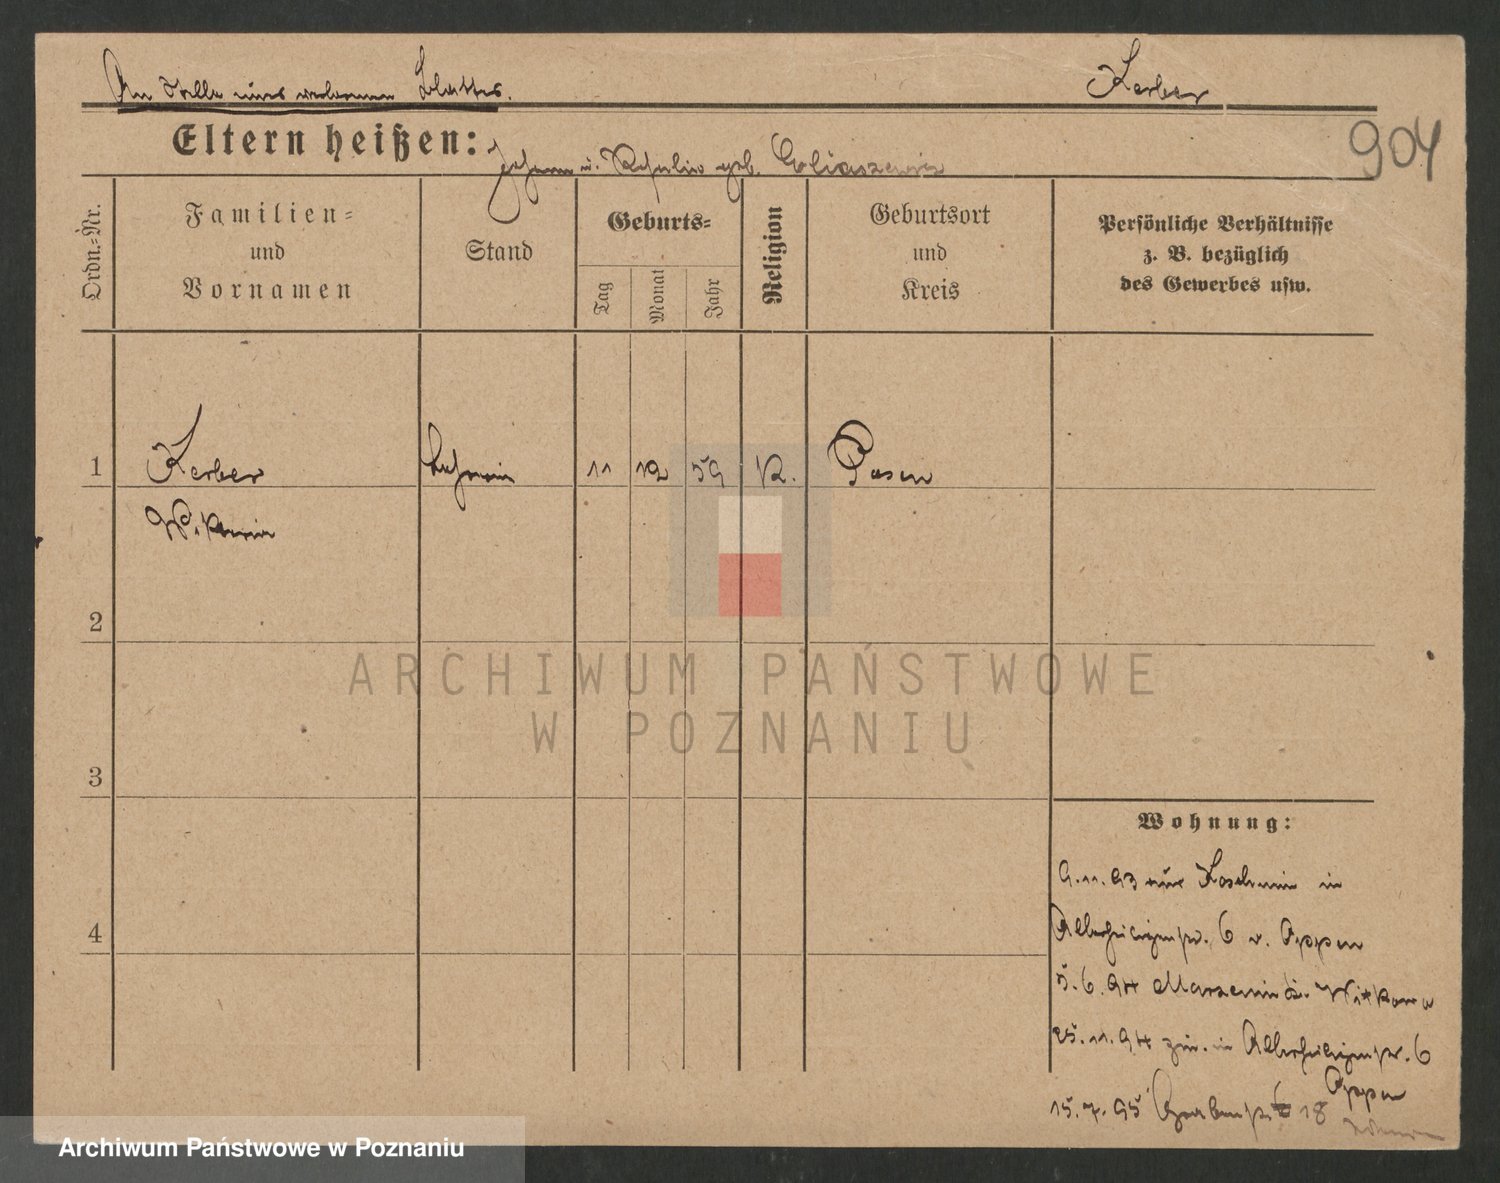 An Stelle eines verlorenen Blattes.
Kerber
Eltern heißen: Johann u. geb. Eliaszewicz
904
Ordn.=Nr.
Familien=
und
Vornamen
Stand
Geburts=
Tag
Monat
Jahr
Religion
Geburtsort
und
Kreis
Persönliche Verhältnisse
z. B. bezüglich
des Gewerbes usw.
1 Kerber 11 12 59 K. Posen
Viktoria
2
ARCHIWUM PAŃSTWOWE
W POZNANIU
3
Wohnung:
9.11.93 aus Koschmin in
4
Allerheiligenstr. 6 v. Appen
5.6.94 Witkowo
25.11.94 zur. in Allerheiligenstr. 6
Appen
15.7.95 Grabenstr. 18
Archiwum Państwowe w Poznaniu